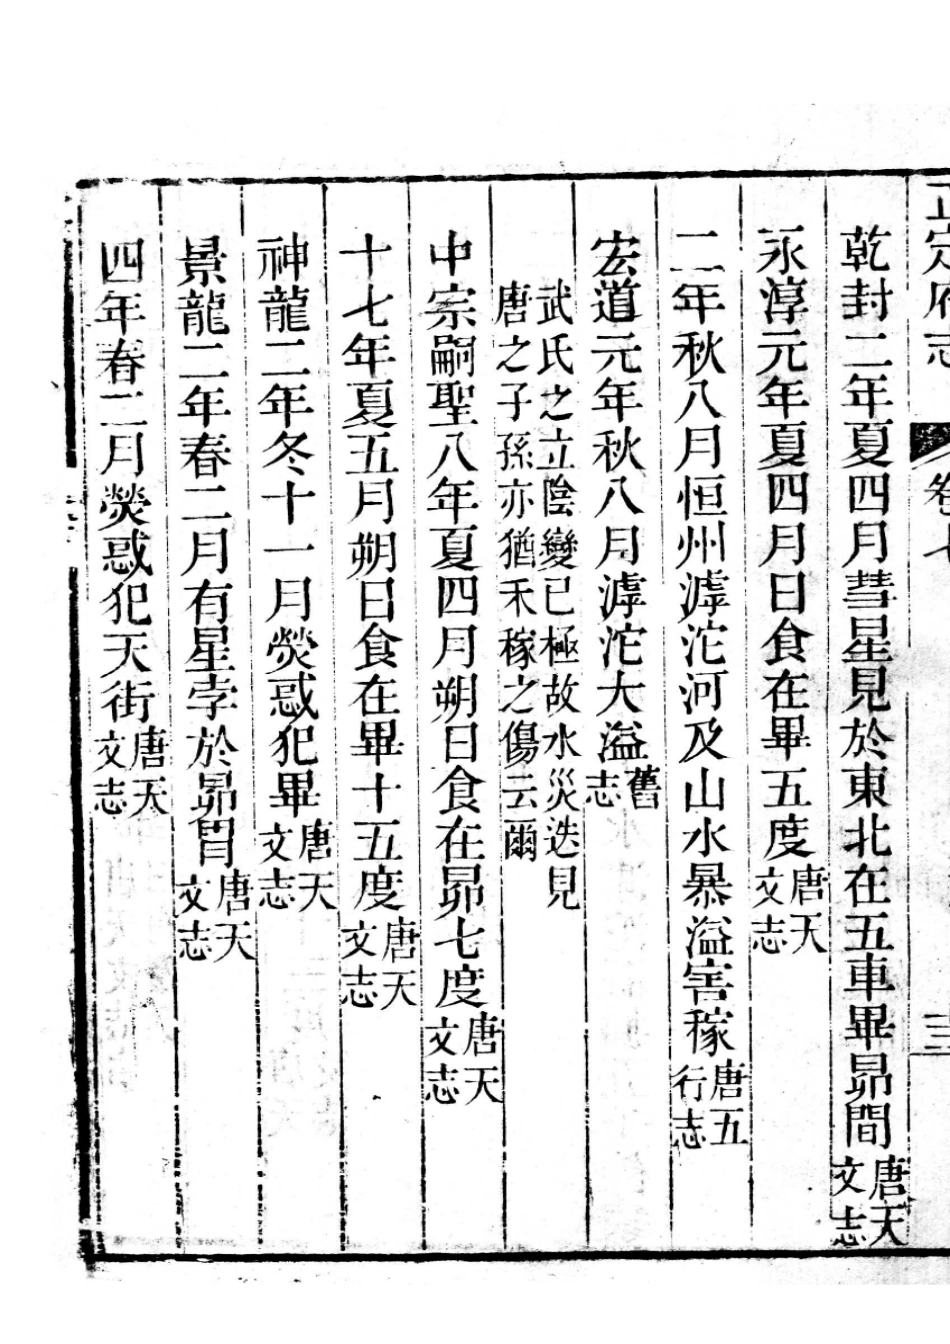 正定府志 卷七 三
乾封二年夏四月彗星見於東北在五車畢昴間唐天文志
永淳元年夏四月日食在畢五度唐天文志
二年秋八月恒州滹沱河及山水暴溢害稼唐五行志
宏道元年秋八月滹沱大溢舊志
武氏之立陰變已極故水災迭見
唐之子孫亦猶禾稼之傷云爾
中宗嗣聖八年夏四月朔日食在昴七度唐天文志
十七年夏五月朔日食在畢十五度唐天文志
神龍二年冬十一月熒惑犯畢唐天文志
景龍二年春二月有星孛於昴胃唐天文志
四年春二月熒惑犯天街唐天文志